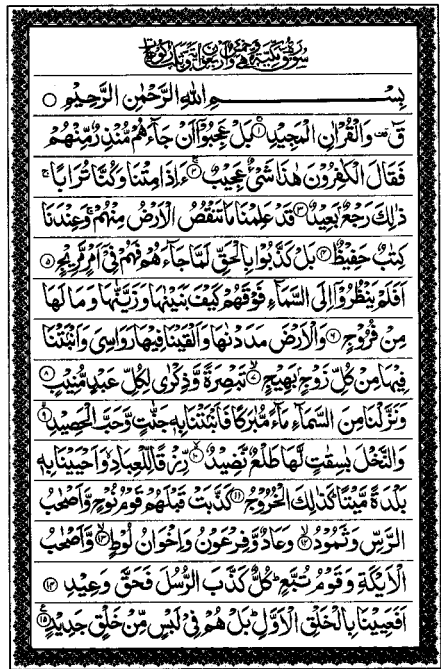 سُوْرَةُ قٓ مَكِّيَّةٌ وَّهِيَ خَمْسٌ وَّاَرْبَعُوْنَ اٰيَةً وَّثَلٰثُ رُكُوْعَاتٍ
بِسْمِ اللّٰهِ الرَّحْمٰنِ الرَّحِيْمِ ○
قٓ ۚ وَالْقُرْاٰنِ الْمَجِيْدِ ① بَلْ عَجِبُوْٓا اَنْ جَآءَهُمْ مُّنْذِرٌ مِّنْهُمْ
فَقَالَ الْكٰفِرُوْنَ هٰذَا شَیْءٌ عَجِيْبٌ ② ءَاِذَا مِتْنَا وَكُنَّا تُرَابًا ۚ
ذٰلِكَ رَجْعٌۢ بَعِيْدٌ ③ قَدْ عَلِمْنَا مَا تَنْقُصُ الْاَرْضُ مِنْهُمْ ۚ وَعِنْدَنَا
كِتٰبٌ حَفِيْظٌ ④ بَلْ كَذَّبُوْا بِالْحَقِّ لَمَّا جَآءَهُمْ فَهُمْ فِیْٓ اَمْرٍ مَّرِيْجٍ ⑤
اَفَلَمْ يَنْظُرُوْٓا اِلَى السَّمَآءِ فَوْقَهُمْ كَيْفَ بَنَيْنٰهَا وَزَيَّنّٰهَا وَمَا لَهَا
مِنْ فُرُوْجٍ ⑥ وَالْاَرْضَ مَدَدْنٰهَا وَاَلْقَيْنَا فِيْهَا رَوَاسِیَ وَاَنْۢبَتْنَا
فِيْهَا مِنْ كُلِّ زَوْجٍۢ بَهِيْجٍ ⑦ تَبْصِرَةً وَّذِكْرٰى لِكُلِّ عَبْدٍ مُّنِيْبٍ ⑧
وَنَزَّلْنَا مِنَ السَّمَآءِ مَآءً مُّبٰرَكًا فَاَنْۢبَتْنَا بِهٖ جَنّٰتٍ وَّحَبَّ الْحَصِيْدِ ⑨
وَالنَّخْلَ بٰسِقٰتٍ لَّهَا طَلْعٌ نَّضِيْدٌ ⑩ رِّزْقًا لِّلْعِبَادِ ۙ وَاَحْيَيْنَا بِهٖ
بَلْدَةً مَّيْتًا ؕ كَذٰلِكَ الْخُرُوْجُ ⑪ كَذَّبَتْ قَبْلَهُمْ قَوْمُ نُوْحٍ وَّاَصْحٰبُ
الرَّسِّ وَثَمُوْدُ ⑫ وَعَادٌ وَّفِرْعَوْنُ وَاِخْوَانُ لُوْطٍ ⑬ وَّاَصْحٰبُ
الْاَيْكَةِ وَقَوْمُ تُبَّعٍ ؕ كُلٌّ كَذَّبَ الرُّسُلَ فَحَقَّ وَعِيْدِ ⑭
اَفَعَيِيْنَا بِالْخَلْقِ الْاَوَّلِ ؕ بَلْ هُمْ فِیْ لَبْسٍ مِّنْ خَلْقٍ جَدِيْدٍ ⑮